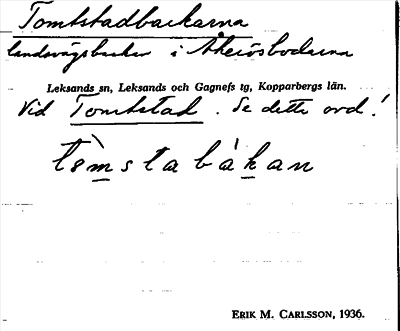 Tomtstadbackarna
landsvägsbackar i Åkeröbodarna
Leksands sn, Leksands och Gagnefs tg, Kopparbergs län.
Vid Tomtstad. Se detta ord!
tömstabákan
ERIK M. CARLSSON, 1936.